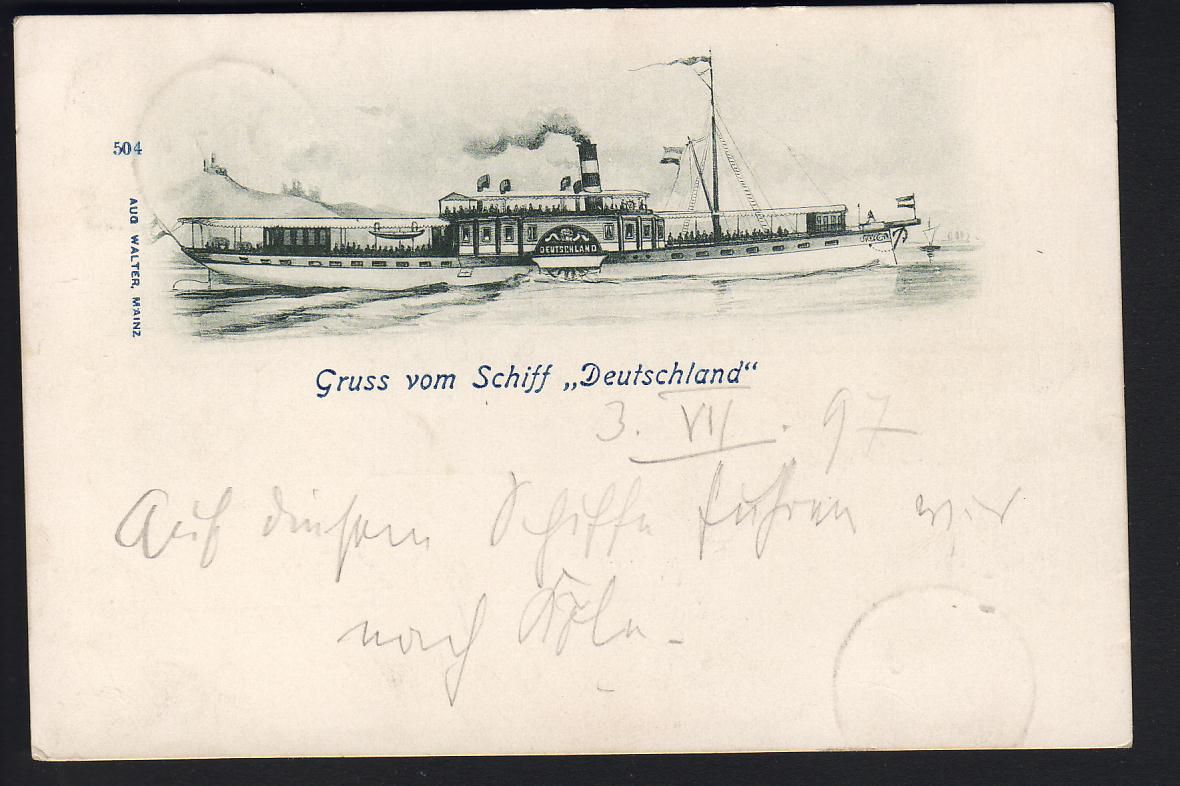 504
AUG WALTER, MAINZ
DEUTSCHLAND
Gruss vom Schiff „Deutschland“
3. VII. 97
Auf diesem Schiffe fuhren wir
nach Köln.